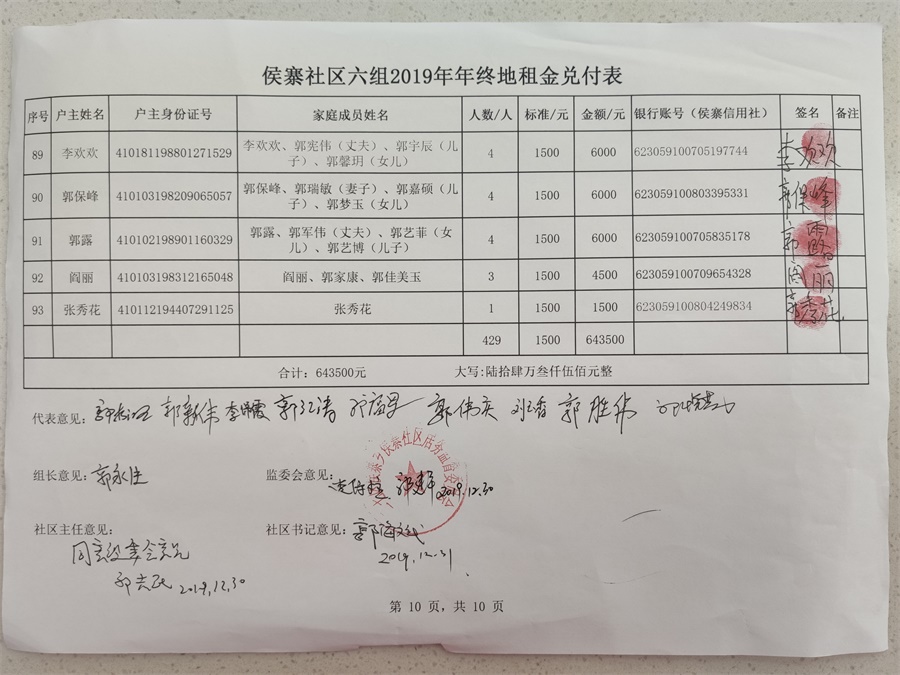 侯寨社区六组2019年年终地租金兑付表
序号 户主姓名 户主身份证号 家庭成员姓名 人数/人 标准/元 金额/元 银行账号（侯寨信用社） 签名 备注
89 李欢欢 410181198801271529 李欢欢、郭宪伟（丈夫）、郭宇辰（儿子）、郭馨玥（女儿） 4 1500 6000 623059100705197744 李欢欢
90 郭保峰 410103198209065057 郭保峰、郭瑞敏（妻子）、郭嘉硕（儿子）、郭梦玉（女儿） 4 1500 6000 623059100803395331 郭保峰
91 郭露 410102198901160329 郭露、郭军伟（丈夫）、郭艺菲（女儿）、郭艺博（儿子） 4 1500 6000 623059100705835178 郭露
92 阎丽 410103198312165048 阎丽、郭家康、郭佳美玉 3 1500 4500 623059100709654328 阎丽
93 张秀花 410112194407291125 张秀花 1 1500 1500 623059100804249834 张秀花
429 1500 643500
合计：643500元 大写:陆拾肆万叁仟伍佰元整
代表意见： 郭新伟 郭伟庆 郭胜伟
组长意见：郭永生 监委会意见： 2019.12.30
社区主任意见： 社区书记意见：
2019.12.31
2019.12.30
第 10 页，共 10 页